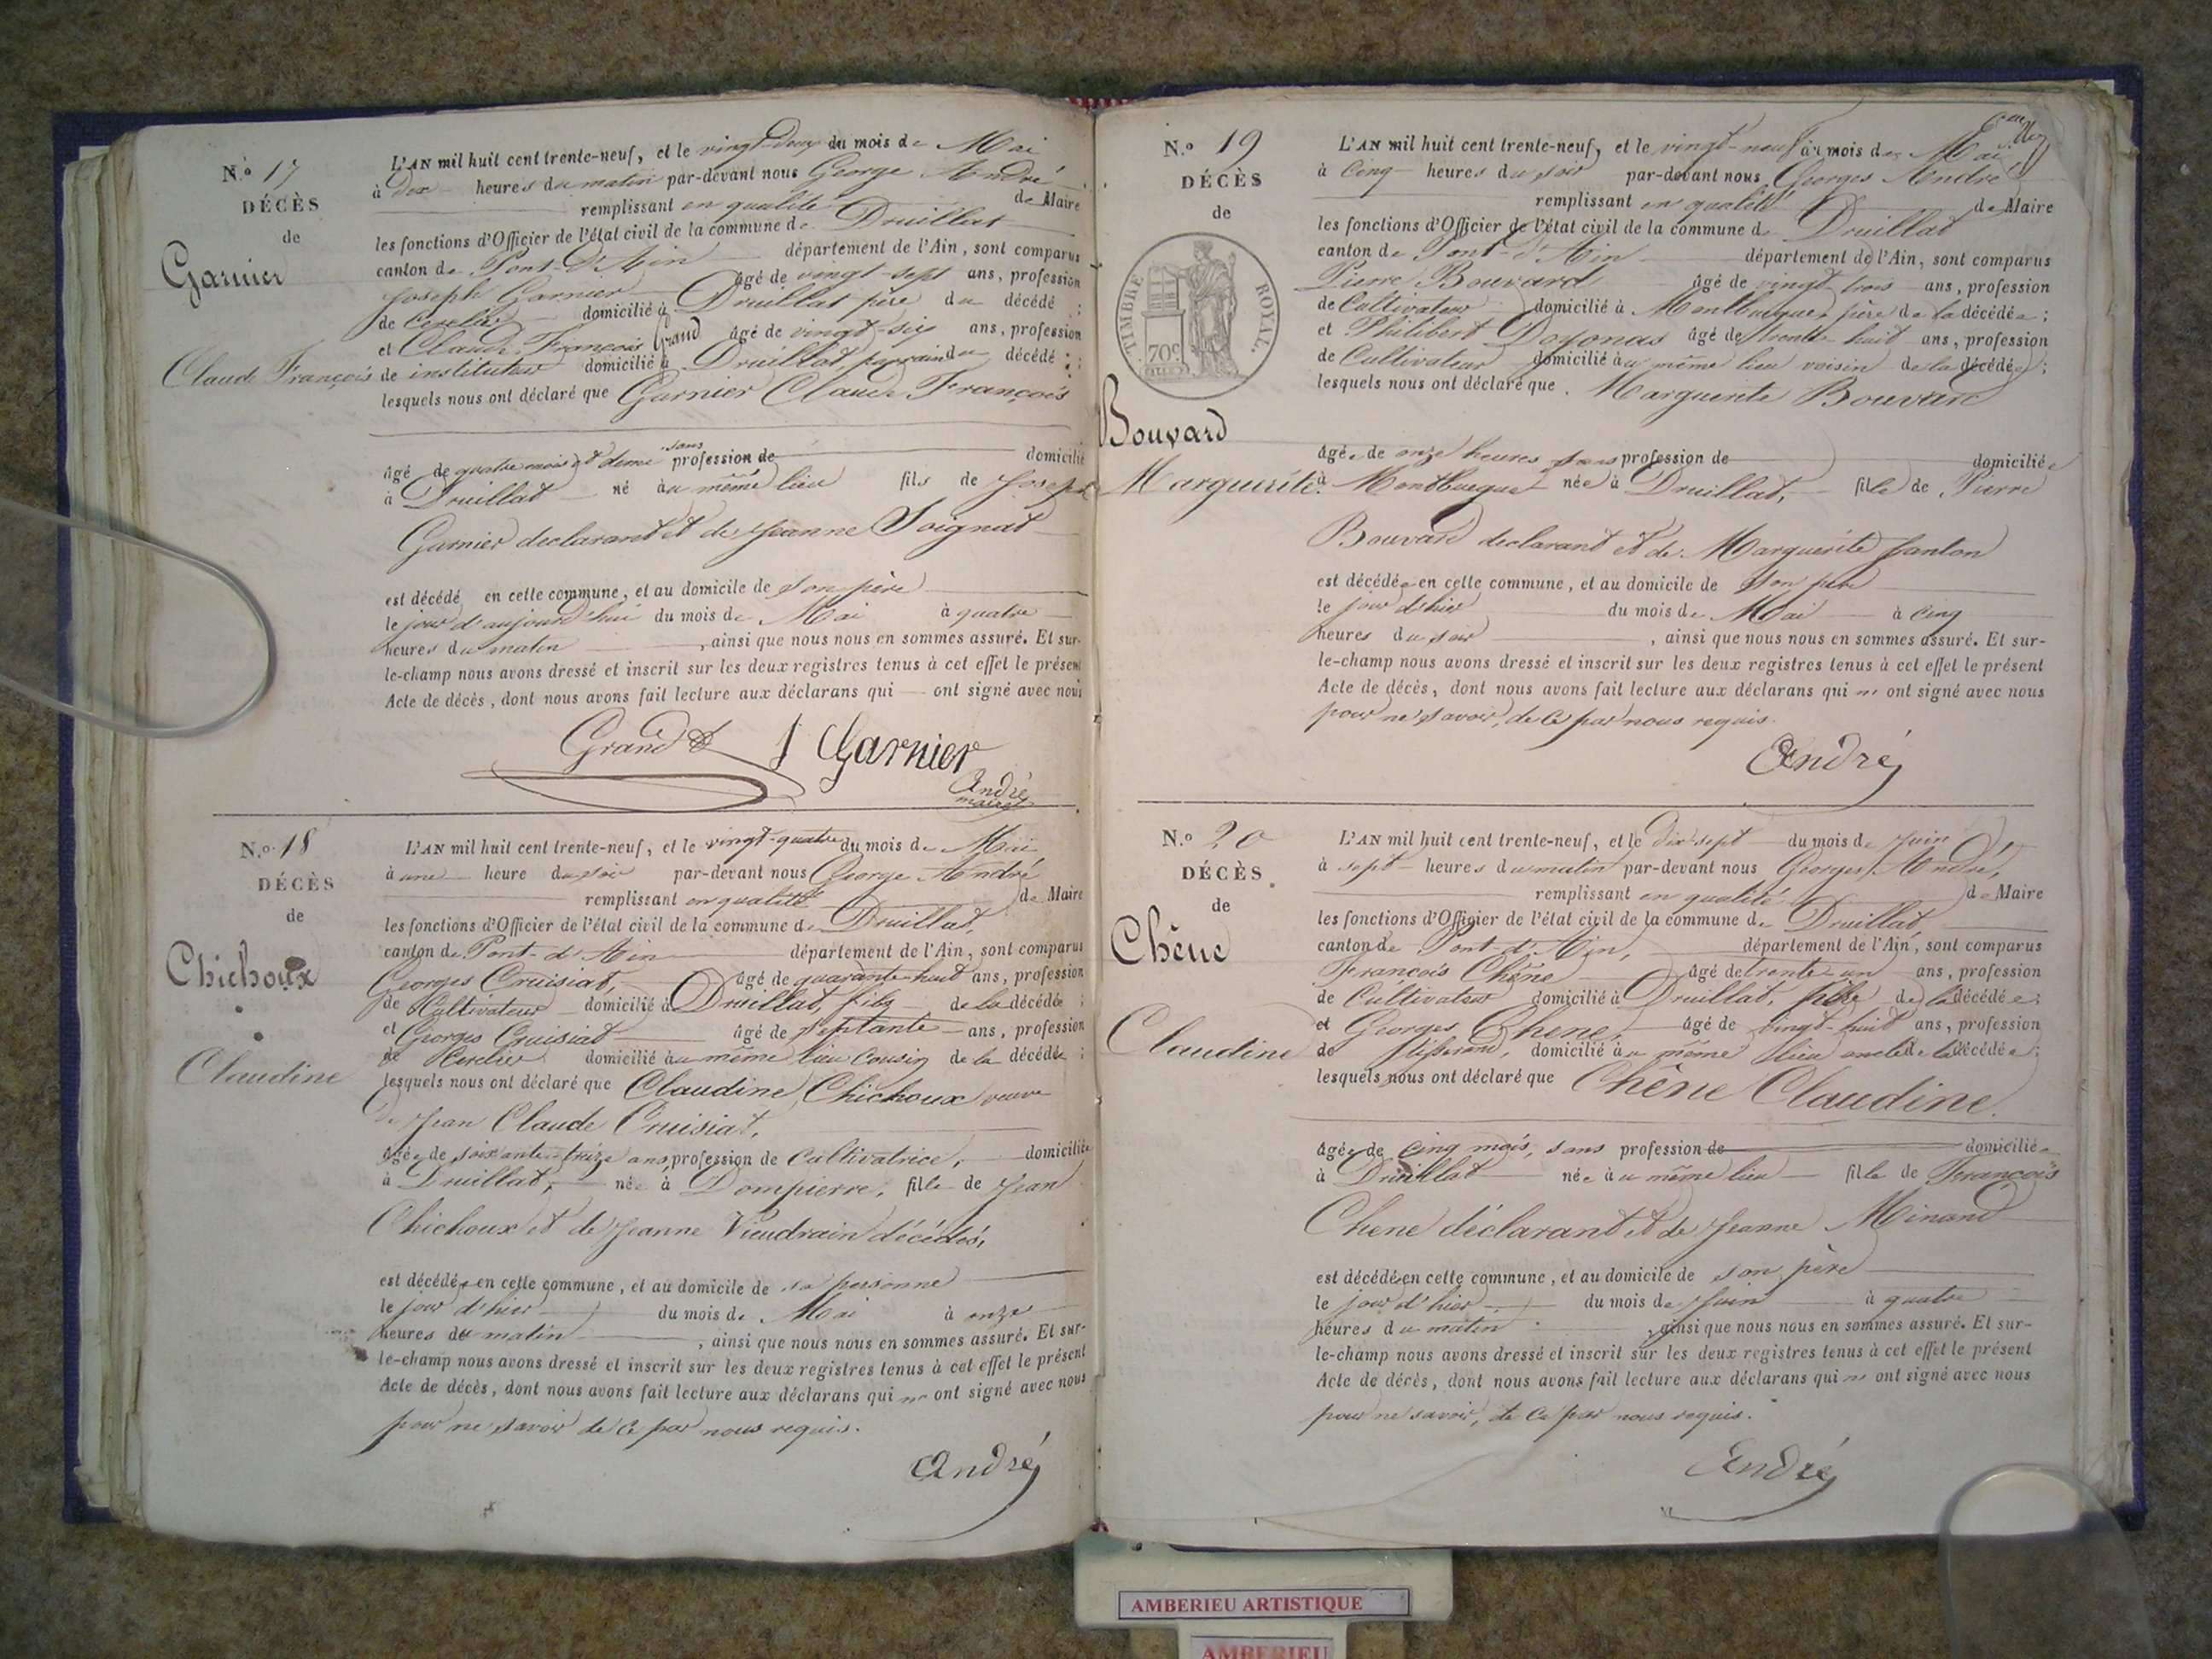 N.º 17
DÉCÈS
de
Garnier
Claude François
L'AN mil huit cent trente-neuf, et le vingt-deux du mois de Mai
à dix heures du matin par-devant nous George André
remplissant en qualité de Maire
les fonctions d'Officier de l'état civil de la commune de Druillat
canton de Pont-d'Ain département de l'Ain, sont comparus
Joseph Garnier âgé de vingt-sept ans, profession
de cerclier domicilié à Druillat père du décédé ;
et Claude François Grand âgé de vingt-six ans, profession
de instituteur domicilié à Druillat, parrain du décédé ;
lesquels nous ont déclaré que Garnier Claude François
âgé de quatre mois et demi sans profession de domicilié
à Druillat né au même lieu fils de Joseph
Garnier declarant et de Jeanne Soignat
est décédé en cette commune, et au domicile de son père
le jour d'aujourd'hui du mois de Mai à quatre
heures du matin , ainsi que nous nous en sommes assuré. Et sur-
le-champ nous avons dressé et inscrit sur les deux registres tenus à cet effet le présent
Acte de décès, dont nous avons fait lecture aux déclarans qui ont signé avec nous
Grand J Garnier
André
maire
N.º 18
DÉCÈS
de
Chichoux
Claudine
L'AN mil huit cent trente-neuf, et le vingt-quatre du mois de Mai
à une heure du soir par-devant nous George André
remplissant en qualité de Maire
les fonctions d'Officier de l'état civil de la commune de Druillat,
canton de Pont-d'Ain département de l'Ain, sont comparus
Georges Cruisiat, âgé de quarante-huit ans, profession
de Cultivateur domicilié à Druillat, fils de la décédée ;
et Georges Cruisiat âgé de septante ans, profession
de Cerclier domicilié au même lieu Cousin de la décédée ;
lesquels nous ont déclaré que Claudine Chichoux veuve
de Jean Claude Cruisiat,
âgée de soixante-treize ans, profession de Cultivatrice, domiciliée
à Druillat, née à Dompierre, fille de Jean
Chichoux et de Jeanne Vieudrain décédés,
est décédée en cette commune, et au domicile de sa personne
le jour d'hier du mois de Mai à onze
heures du matin , ainsi que nous nous en sommes assuré. Et sur-
le-champ nous avons dressé et inscrit sur les deux registres tenus à cet effet le présent
Acte de décès, dont nous avons fait lecture aux déclarans qui n' ont signé avec nous
pour ne savoir de ce par nous requis.
André
N.º 19
DÉCÈS
de
TIMBRE ROYAL.
70c
Bouvard
Marguerite
L'AN mil huit cent trente-neuf, et le vingt-neuf du mois de Mai
à Cinq heures du soir par-devant nous Georges André
remplissant en qualité de Maire
les fonctions d'Officier de l'état civil de la commune de Druillat
canton de Pont-d'Ain département de l'Ain, sont comparus
Pierre Bouvard âgé de vingt-trois ans, profession
de Cultivateur domicilié à Montbuegue père de la décédée ;
et Philibert Doyonas âgé de trente-huit ans, profession
de Cultivateur domicilié au même lieu voisin de la décédée ;
lesquels nous ont déclaré que Marguerite Bouvard
âgée de onze heures sans profession de domiciliée
à Montbuegue née à Druillat, fille de Pierre
Bouvard declarant et de Marguerite Janton
est décédée en cette commune, et au domicile de son père
le jour d'hier du mois de Mai à cinq
heures du soir , ainsi que nous nous en sommes assuré. Et sur-
le-champ nous avons dressé et inscrit sur les deux registres tenus à cet effet le présent
Acte de décès, dont nous avons fait lecture aux déclarans qui n' ont signé avec nous
pour ne savoir, de ce par nous requis.
André
N.º 20
DÉCÈS
de
Chêne
Claudine
L'AN mil huit cent trente-neuf, et le dix sept du mois de Juin
à sept heures du matin par-devant nous Georges André,
remplissant en qualité de Maire
les fonctions d'Officier de l'état civil de la commune de Druillat,
canton de Pont-d'Ain, département de l'Ain, sont comparus
François Chêne âgé de trente-un ans, profession
de Cultivateur domicilié à Druillat, de la décédée ;
et Georges Chene, âgé de vingt-huit ans, profession
de tisserand, domicilié au même lieu oncle de la décédée ;
lesquels nous ont déclaré que Chêne Claudine.
âgée de cinq mois, sans profession de domiciliée
à Druillat née au même lieu fille de François
Chene déclarant et de Jeanne Minand
est décédée en cette commune, et au domicile de son père
le jour d'hier du mois de Juin à quatre
heures du matin , ainsi que nous nous en sommes assuré. Et sur-
le-champ nous avons dressé et inscrit sur les deux registres tenus à cet effet le présent
Acte de décès, dont nous avons fait lecture aux déclarans qui n' ont signé avec nous
pour ne savoir, de ce par nous requis.
André
AMBERIEU ARTISTIQUE
AMBERIEU